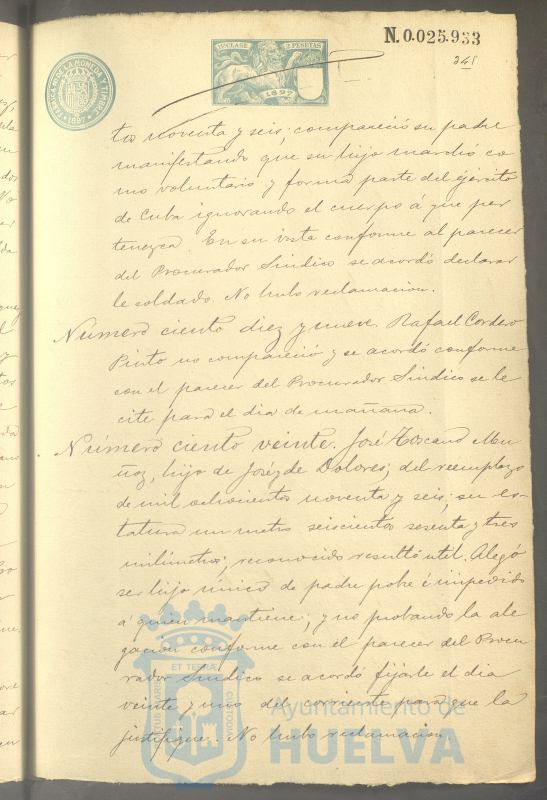 FABRICA N. DE LA MONEDA Y TIMBRE
1897
11ª CLASE 2 PESETAS
1897
N.0.025.933
341
tos noventa y seis; compareció su padre
manifestando que su hijo marchó co
mo voluntario y forma parte del ejército
de Cuba ignorando el cuerpo a que per
tenezca. En su vista conforme al parecer
del Procurador Sindico se acordó declarar
le soldado. No hubo reclamacion.
Número ciento diez y nueve. Rafael Cordero
Pinto no compareció y se acordó conforme
con el parecer del Procurador Sindico se le
cite para el dia de mañana.
Número ciento veinte. José Toscano Mu
ñoz, hijo de José y de Dolores; del reemplazo
de mil ochocientos noventa y seis; su es-
tatura un metro seiscientos sesenta y tres
milimetros; reconocido resultó util. Alegó
ser hijo único de padre pobre é impedido
á quien mantiene; y no probando la ale
gacion conforme con el parecer del Procu
rador Sindico se acordó fijarle el dia
veinte y uno del corriente para que la
justifique. No hubo reclamacion.
ET TERRÆ
CUSTODIA
Ayuntamiento de
HUELVA